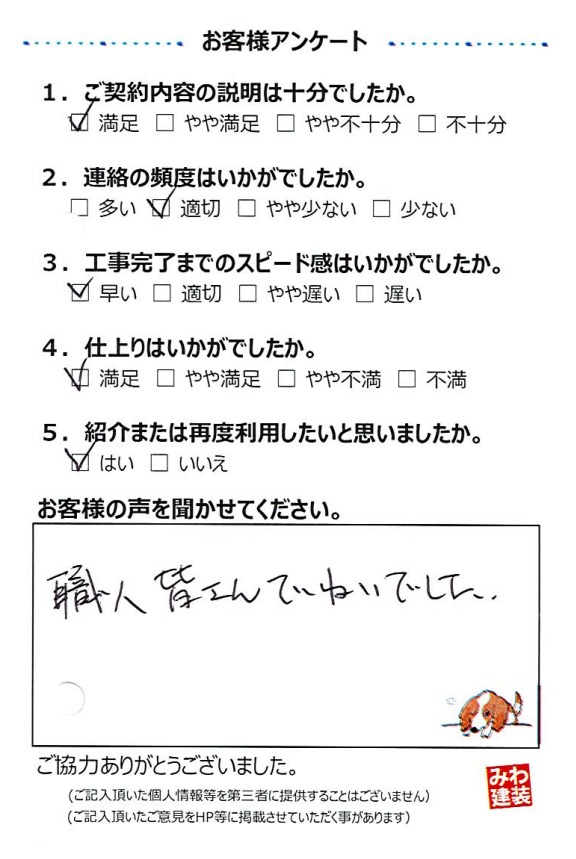 お客様アンケート
1. ご契約内容の説明は十分でしたか。
☑ 満足 □ やや満足 □ やや不十分 □ 不十分
2. 連絡の頻度はいかがでしたか。
□ 多い ☑ 適切 □ やや少ない □ 少ない
3. 工事完了までのスピード感はいかがでしたか。
☑ 早い □ 適切 □ やや遅い □ 遅い
4. 仕上りはいかがでしたか。
☑ 満足 □ やや満足 □ やや不満 □ 不満
5. 紹介または再度利用したいと思いましたか。
☑ はい □ いいえ
お客様の声を聞かせてください。
職人皆さんていねいでした.
ご協力ありがとうございました。
(ご記入頂いた個人情報等を第三者に提供することはございません)
(ご記入頂いたご意見をHP等に掲載させていただく事があります)
みわ
建装